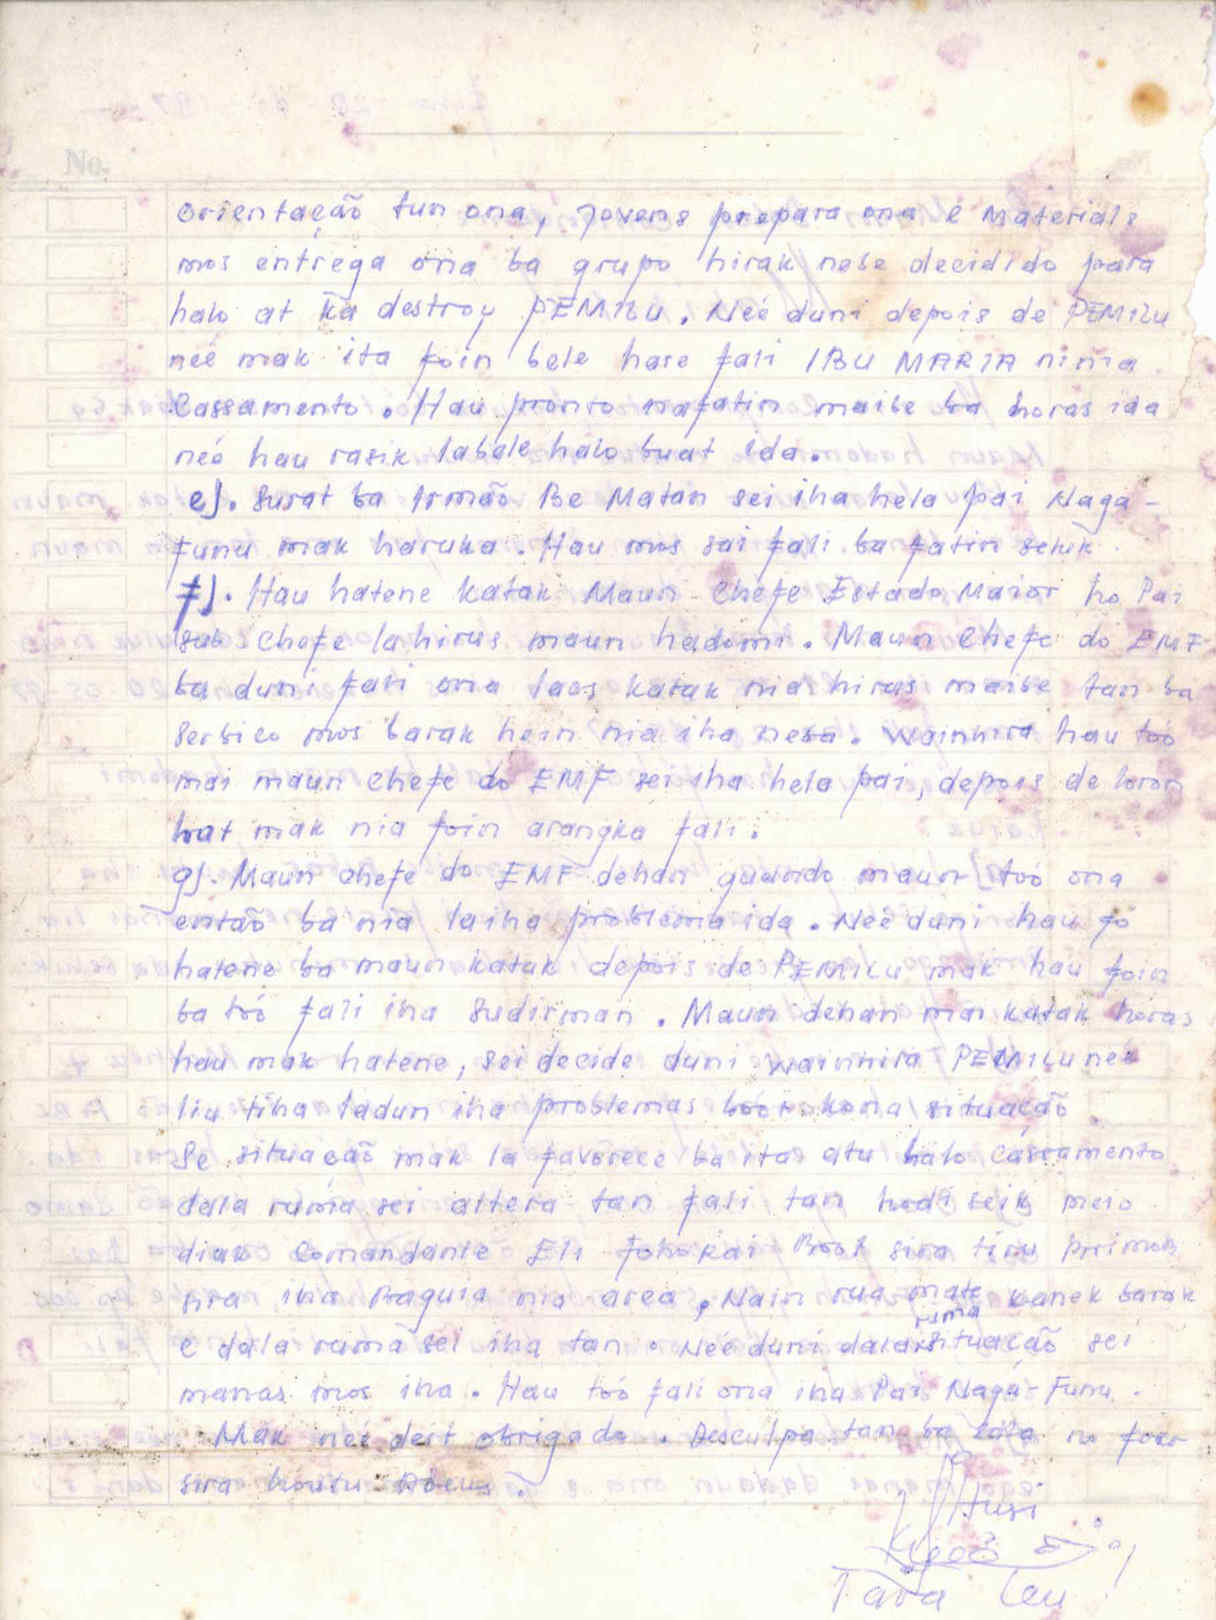 No.
orientação tun ona, Jovens prepara ona e Materials
mos entrega ona ba grupo hirak nebe decidido para
halo at ka destroy PEMILU. Neé duni depois de PEMILU
neé mak ita foin bele hare fali IBU MARIA ninia
Cassamento. Hau pronto nafatin maibe ba horas ida
neé hau rasik labele halo buat ida.
e). Surat ba Irmão Be Matan sei iha hela pai Naga-
funu mak haruka. Hau mos sai fali ba fatin seluk.
f). Hau hatene katak Maun Chefe Estado Maior ho Pai
sub Chefe la hirus maun hadomi. Maun Chefe do EMF
ba duni fali ona laos katak nia hirus maibe tan ba
Serbico mos barak hein nia iha neba. Wainhira hau toó
mai maun Chefe do EMF sei iha hela pai, depois de loron
hat mak nia foin arangka fali.
g). Maun Chefe do EMF dehan quando maun toó ona
então ba nia laiha problema ida. Neé duni hau fó
hatene ba maun katak depois de PEMILU mak hau foin
ba toó fali iha Sudirman. Maun dehan mai katak horas
hau mak hatene, sei decide duni wainhira PEMILU neé
liu tiha ladun iha problemas boót kona situação.
Se situação mak la favorece ba ita atu halo Cassamento
dala ruma sei altera tan fali tan hodi seik meio
diak Comandante Eli Fohorai Boót sira tiru primos
sira iha Baguia nia area, Nain rua mate kanek barak
e dala ruma sei iha tan. Neé duni dala ruma situação sei
manas mos iha. Hau toó fali ona iha Pai Naga-Funu.
Mak neé deit obrigado. Desculpa tan ba no foer
sira hotu. Adeus.
Husi
Tara Leu